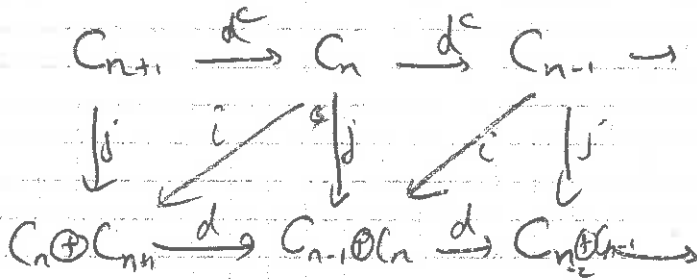 C_{n+1} d^c C_n d^c C_{n-1} →
j i j i j
C_n⊕C_{n+1} d C_{n-1}⊕C_n d C_{n-2}⊕C_{n-1}